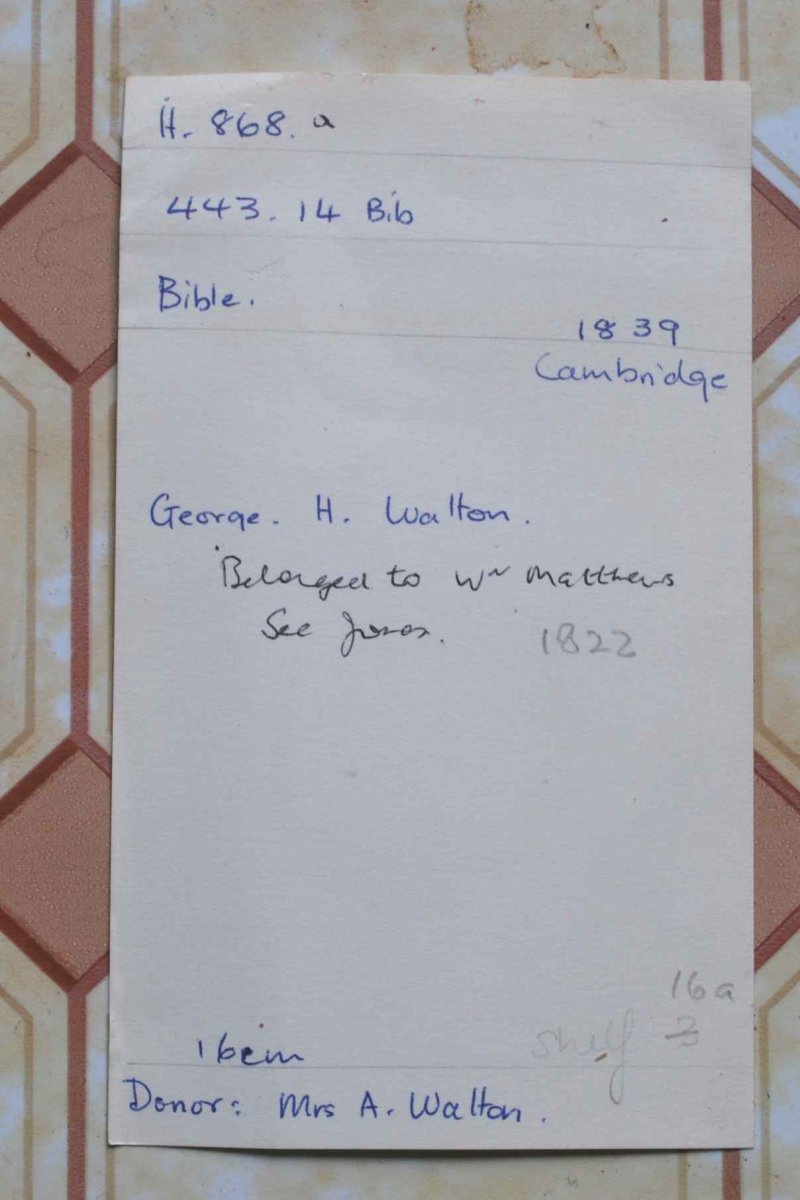 H. 868. a
443. 14 Bib
Bible.
1839
Cambridge
George. H. Walton.
Belonged to Wm Matthews
See
1822
16a
16cm
shelf 3
Donor: Mrs A. Walton.